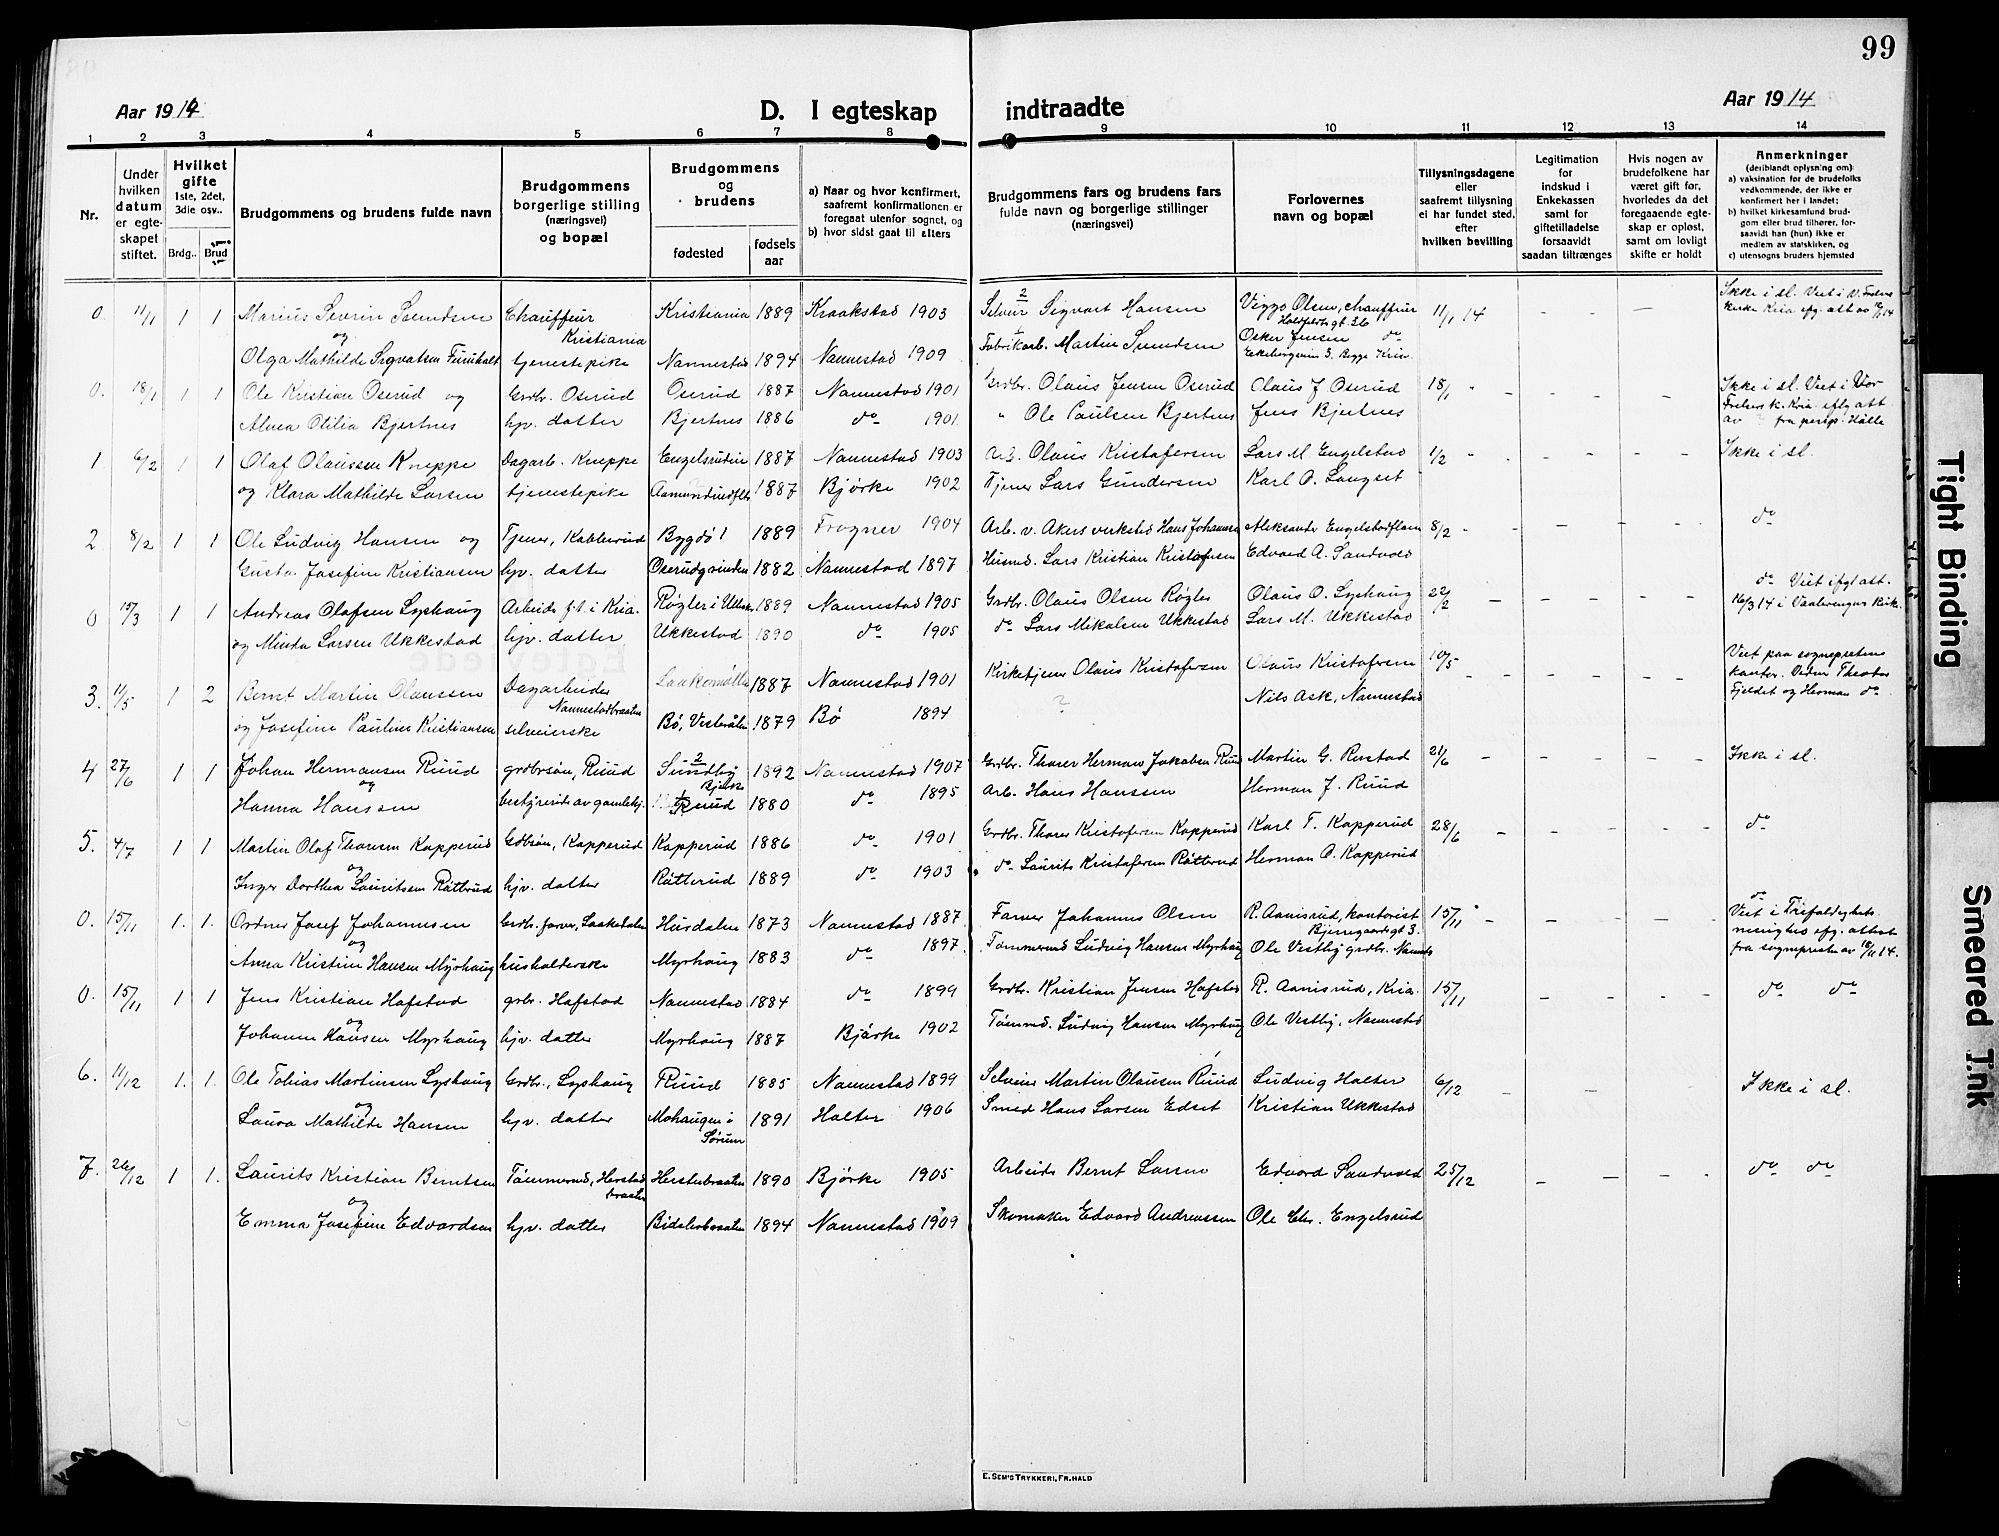 99
Aar 1914
D. I egteskap
indtraadte
Aar 1914
1 2 3 4 5 6 7 8 9 10 11 12 13 14
Nr.
Under hvilken datum er egteskapet stiftet.
Hvilket gifte 1ste, 2det, 3die osv..
Brdg.. Brud
Brudgommens og brudens fulde navn
Brudgommens borgerlige stilling (næringsvei) og bopæl
Brudgommens og brudens
fødested
fødsels aar
a) Naar og hvor konfirmert, saafremt konfirmationen er foregaat utenfor sognet, og
b) hvor sidst gaat til alters
Brudgommens fars og brudens fars fulde navn og borgerlige stillinger (næringsvei)
Forlovernes navn og bopæl
Tillysningsdagene eller saafremt tillysning ei har fundet sted, efter hvilken bevilling
Legitimation for indskud i Enkekassen samt for giftetilladelse forsaavidt saadan tiltrænges
Hvis nogen av brudefolkene har været gift før, hvorledes da det foregaaende egteskap er opløst, samt om lovligt skifte er holdt
Anmerkninger (deriblandt oplysning om):
a) vaksination for de brudefolks vedkommende, der ikke er konfirmert her i landet;
b) hvilket kirkesamfund brudgom eller brud tilhører, forsaavidt han (hun) ikke er medlem av statskirken, og
c) utensogns bruders hjemsted
0. 11/1 1 1 Marius Sevrin Svendsen Chauffeur Kristiania 1889 Kraakstad 1903 Sigvart Hansen Viggo Olsen, chauffeur 11/1 14 Ikke i sl. Viet i
og Kristiania
Olga Mathilde Sigvatsen Furuhalt tjenestepike Nannestad 1894 Nannestad 1909 Fabrikarb. Martin Svendsen Osker Jensen do
0. 18/1 1 1 Ole Kristian Oserud og Grdbr. Oserud Oserud 1887 Nannestad 1901 Grdbr. Olaus Jensen Oserud Olaus J. Oserud 18/1 " Ikke i sl. Viet i Vor
Alvea Otilia Bjertnes hjv. datter Bjertnes 1886 do 1901 " Ole Paulsen Bjertnes Jens Bjertnes Frelsers k. Kria. iflg att.
1 6/2 1 1 Olaf Olaussen Kneppe Dagarb. Kneppe Engelsrudin 1887 Nannestad 1903 Arb. Olaus Kristofersen Lars M. Engelstad 1/2 " Ikke i sl.
og Klara Mathilde Larsen tjenestepike 1887 Bjørke 1902 Tjener Lars Gundersen Karl O. Langset
2 8/2 1 1 Ole Ludvig Hansen og Tjener, Kabberud Bygdø 1889 Frogner 1904 Arb. v. Akers verksted Hans Johansen Aleksander 8/2 do
Gusta Josefine Kristiansen hjv. datter Oserudgrinden 1882 Nannestad 1897 Husmd. Lars Kristian Kristofersen Edvard A. Sandvold
0 15/3 1 1 Andreas Olafsen Lyshaug Arbeids f.t. i Kria. Røgler i Ullsk. 1889 Nannestad 1905 Grdbr. Olaus Olsen Røgler Olaus O. Lyshaug 22/2 do Viet iflg att.
og Minda Larsen Ukkestad hjv. datter Ukkestad 1890 do 1905 do Lars Mikalsen Ukkestad Lars M. Ukkestad 16/3 14 i Vaalerengens kirk.
3. 11/5 1 2 Bernt Martin Olaussen Dagarbeider 1887 Nannestad 1901 Kirketjener Olaus Kristofersen Olaus Kristofersen 10/5 Viet paa sogneprestens
Nannestadbraaten kontor. Vidner Theodor
og Josefine Pauline Kristiansen selveierske Bø, Vesteraalen 1879 Bø 1894 ? Nils Ask, Nannestad Fjeldet og Herman do
4 27/6 1 1 Johan Hermansen Ruud grdbrsøn, Ruud Sundby 1892 Nannestad 1907 Grdbr. Thorer Herman Jakobsen Ruud Martin G. Rustad 21/6 Ikke i sl.
og Bjerke
Hanna Hanssen bestyrerinde av gamlehj. Ruud 1880 do 1895 Arb. Hans Hanssen Herman J. Ruud
5. 4/7 1 1 Martin Olaf Thoresen Kopperud Gdbsøn, Kopperud Kopperud 1886 do 1901 Grdbr. Thorer Kristofersen Kopperud Karl T. Kopperud 28/6 do
og
Inger Dorthea Lauritsen Råtterud hjv. datter Råtterud 1889 do 1903 do Laurits Kristofersen Råtterud Herman O. Kopperud
0. 15/11 1. 1. Ordner Josef Johannesen Grdbr. farver, Laakedalen Hurdalen 1873 Nannestad 1887 Farver Johannes Olsen R. Aanisrud, kontorist 15/11 do Viet i Trefoldigheds
og Bjerregaardsgt 3. menighet efg. attest
Anna Kristine Hansen Myrhaug husholderske Myrhaug 1883 do 1897 Tømmermd Ludvig Hansen Myrhaug Ole Vestby grdbr. fra sogneprest av 16/11 14.
0. 15/11 1 1 Jens Kristian Hafstad grbr. Hafstad Nannestad 1884 do 1899 Grdbr. Kristian Jensen Hafstad R. Aanisrud, Kria. 15/11 do do
og
Johanne Hansen Myrhaug hjv. datter Myrhaug 1887 Bjørke 1902 Tømmd. Ludvig Hansen Myrhaug Ole Vestby, Nannestad
6. 11/12 1. 1. Ole Tobias Martinsen Lyshaug Grdbr., Lyshaug Ruud 1885 Nannestad 1899 Selveier Martin Olausen Ruud Ludvig Holter 6/12 Ikke i sl.
og
Laura Mathilde Hansen hjv. datter Mohaugen i Sørum 1891 Holter 1906 Smed Hans Larsen Edset Kristian Ukkestad
7. 26/12 1 1. Laurits Kristian Berntsen Tømmermd, Herstadbraaten Hersterbraaten 1890 Bjørke 1905 Arbeids Bernt Larsen Edvard Sandvold 25/12 do do
og
Emma Josefine Edvardsen hjv. datter Bidslerbraaten 1894 Nannestad 1909 Skomaker Edvard Andreassen Ole Chr. Engelsrud
E. SEM'S TRYKKERI, FR.HALD
Tight Binding
Smeared Ink